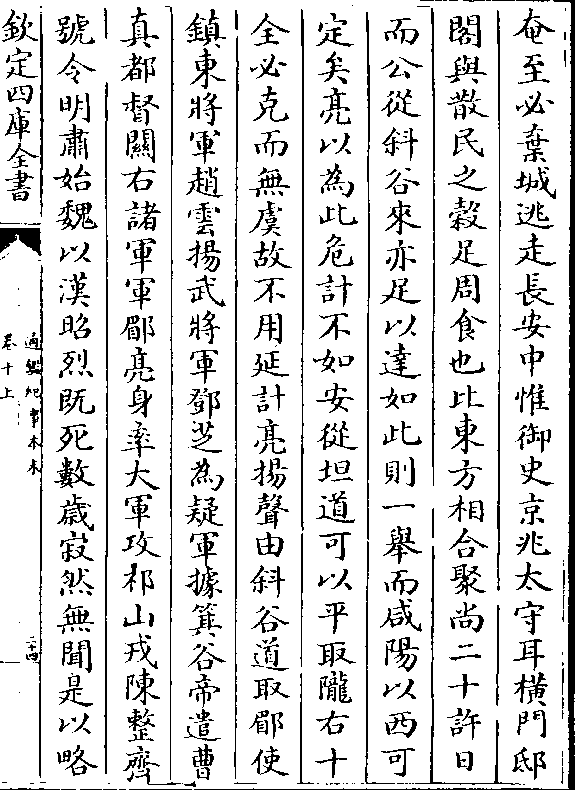 奄至必棄城逃走長安中惟御史京兆太守耳橫門邸
閣與散民之穀足周食也比東方相合聚尚二十許日
而公從斜谷來亦足以達如此則一舉而咸陽以西可
定矣亮以為此危計不如安從坦道可以平取隴右十
全必克而無虞故不用延計亮揚聲由斜谷道取郿使
鎮東將軍趙雲揚武將軍鄧芝為疑軍據箕谷帝遣曹
真都督關右諸軍軍郿亮身率大軍攻祁山戎陳整齊
號令明肅始魏以漢昭烈既死數歲寂然無聞是以略
欽定四庫全書
通鑑紀事本末
卷十上
二十四